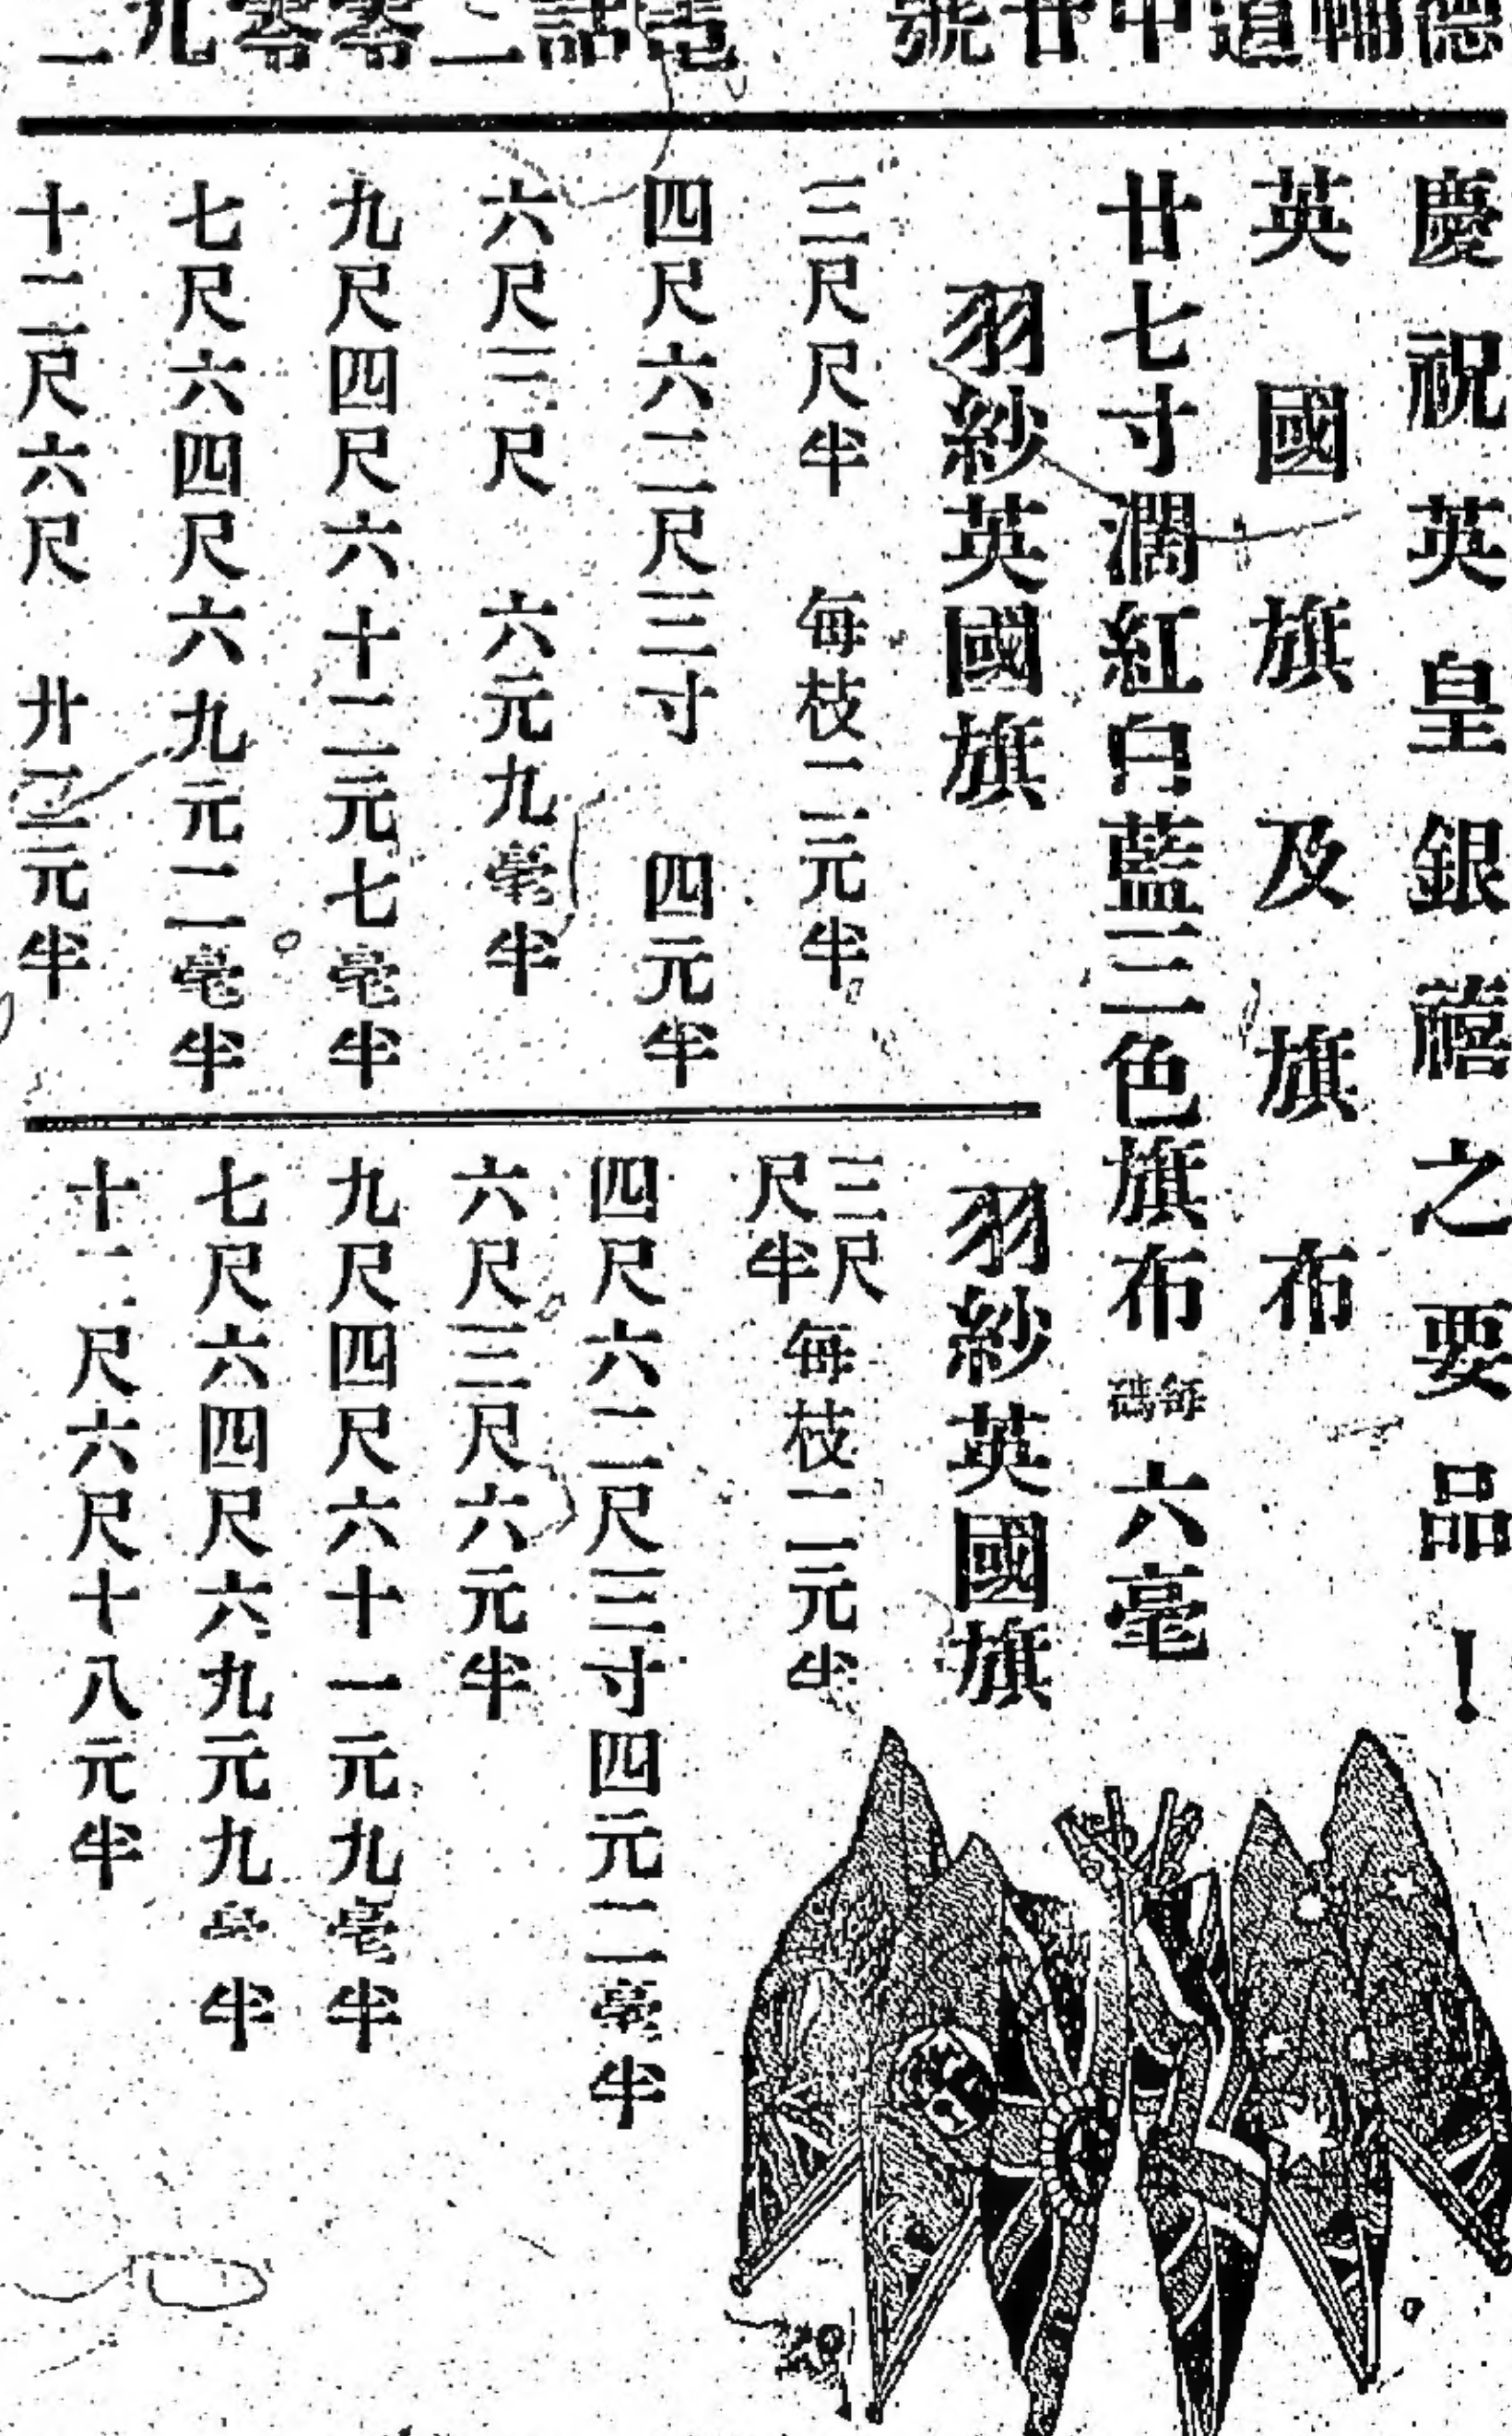 德輔道中廿號 電話二零零九二
慶祝英皇銀禧之要品！
英國旗及旗布
廿七寸濶紅白藍三色旗布每碼六毫
羽紗英國旗
三尺尺半 每枝二元半
四尺六二尺三寸 四元半
六尺三尺 六元九毫半
九尺四尺六十二元七毫半
七尺六四尺六九元二毫半
十二尺六尺 元半
羽紗英國旗
三尺尺半每枝二元半
四尺六二尺三寸四元二毫半
六尺三尺六元半
九尺四尺六十一元九毫半
七尺六四尺六九元九半
十二尺六尺十八元半